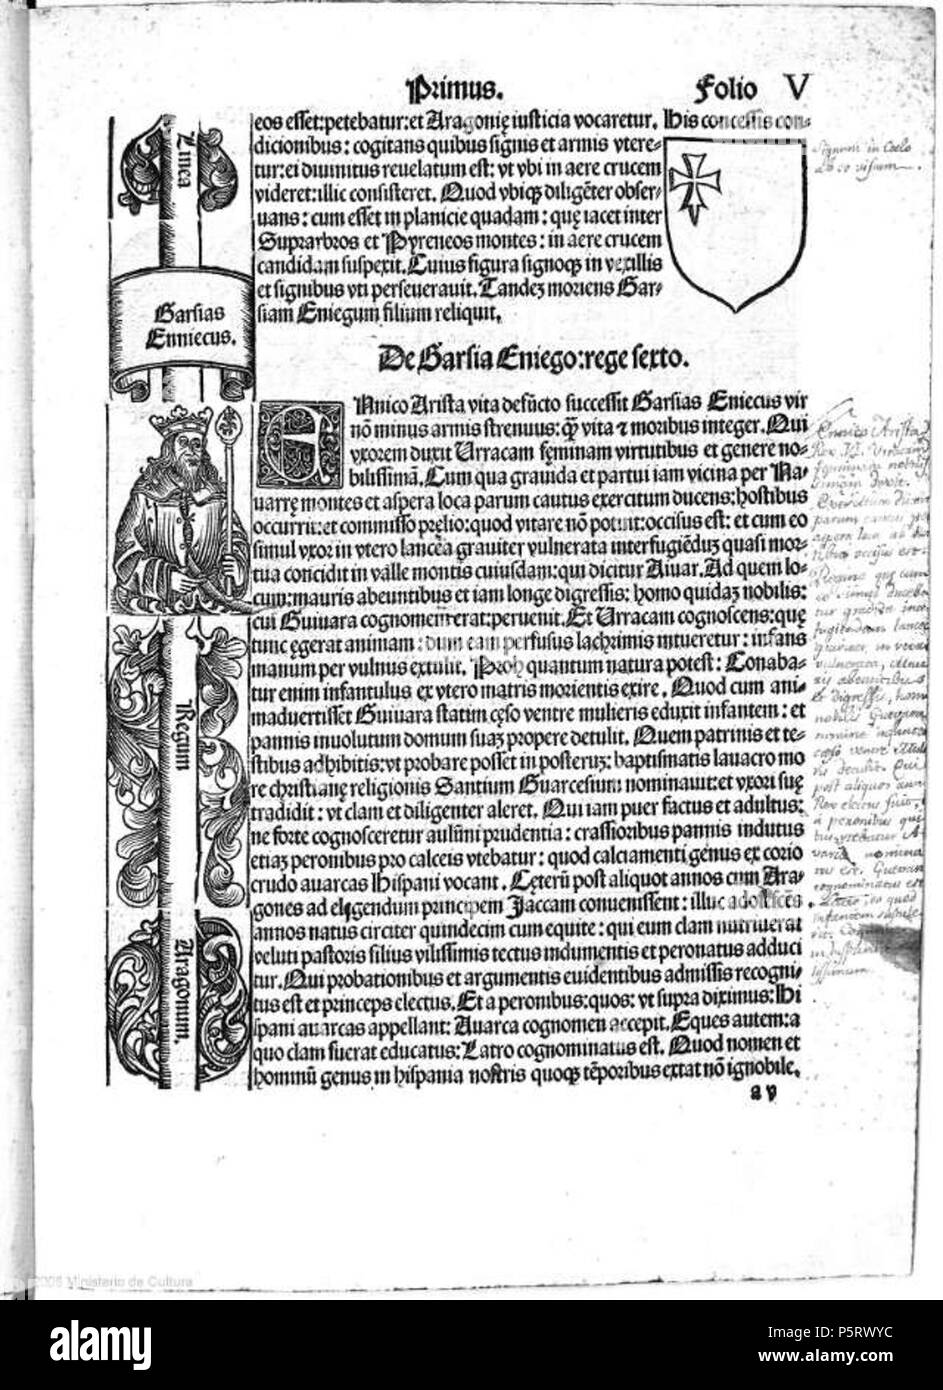 Primus. Folio V
eos esset:petebatur:et Aragonię iusticia vocaretur. His concessis con-
dicionibus: cogitans quibus signis et armis vtere-
tur:ei diuinitus reuelatum est: vt vbi in aere crucem
videret:illic consisteret. Quod vbiqʒ diligẽter obser-
uans: cum esset in planicie quadam: quę iacet inter
Suprarbros et Pyreneos montes: in aere crucem
candidam suspexit. Cuius figura signoqʒ in vexillis
et signibus vti perseuerauit. Tandeʒ moriens Gar-
siam Eniegum filium reliquit.
Linea
Garsias
Enniecus.
De Garsia Eniego:rege sexto.
ENnico Arista vita defũcto successit Garsias Eniecus vir
nõ minus armis strenuus: qᷓ vita ⁊ moribus integer. Qui
vxorem duxit Urracam fęminam virtutibus et genere no-
bilissimã. Cum qua grauida et partui iam vicina per Na-
uarrę montes et aspera loca parum cautus exercitum ducens: hostibus
occurrit: et commisso pręlio: quod vitare nõ potuit: occisus est: et cum eo
simul vxor in vtero lancea grauiter vulnerata inter fugiẽduʒ quasi mor-
tua concidit in valle montis cuiusdam: qui dicitur Aiuar. Ad quem lo-
cum: mauris abeuntibus et iam longe digressis: homo quidaʒ nobilis:
cui Guiuara cognomen erat: peruenit. Et Urracam cognoscens: quę
tunc ęgerat animam: dum eam perfusus lachrimis intueretur: infans
manum per vulnus extulit. Proh quantum natura potest: Conaba-
tur enim infantulus ex vtero matris morientis exire. Quod cum ani-
maduertisset Guiuara statim cęso ventre mulieris eduxit infantem: et
pannis inuolutum domum suaʒ propere detulit. Quem patrinis et te-
stibus adhibitis: vt probare posset in posteruʒ: baptismatis lauacro mo
re christianę religionis Santium Guarcesum nominauit: et vxori suę
tradidit: vt clam et diligenter aleret. Qui iam puer factus et adultus:
ne forte cognosceretur a sũni prudentia: crassioribus pannis indutus
etiaʒ peronibus pro calceis vtebatur: quod calciamenti genus ex corio
crudo auarcas Hispani vocant. Cęterũ post aliquot annos cum Ara-
gones ad eligendum principem Jaccam conuenissent: illuc adolescẽs
annos natus circiter quindecim cum equite: qui eum clam nutriuerat
veluti pastoris filius vilissimis tectus indumentis et peronatus adduci
tur. Qui probationibus et argumentis euidentibus admissis recogni-
tus est et princeps electus. Et a peronibus: quos: vt supra diximus: Hi
spani auarcas appellant: Auarca cognomen accepit. Eques autem: a
quo clam fuerat educatus: Latro cognominatus est. Quod nomen et
hominũ genus in hispania nostris quoqʒ tẽporibus extat nõ ignobile.
a v
Regum
Aragonum.
Signum in Coelo
ab eo visum
Ennico Arista
2008 Ministerio de Cultura
alamy
Image ID: P5RWYC
www.alamy.com